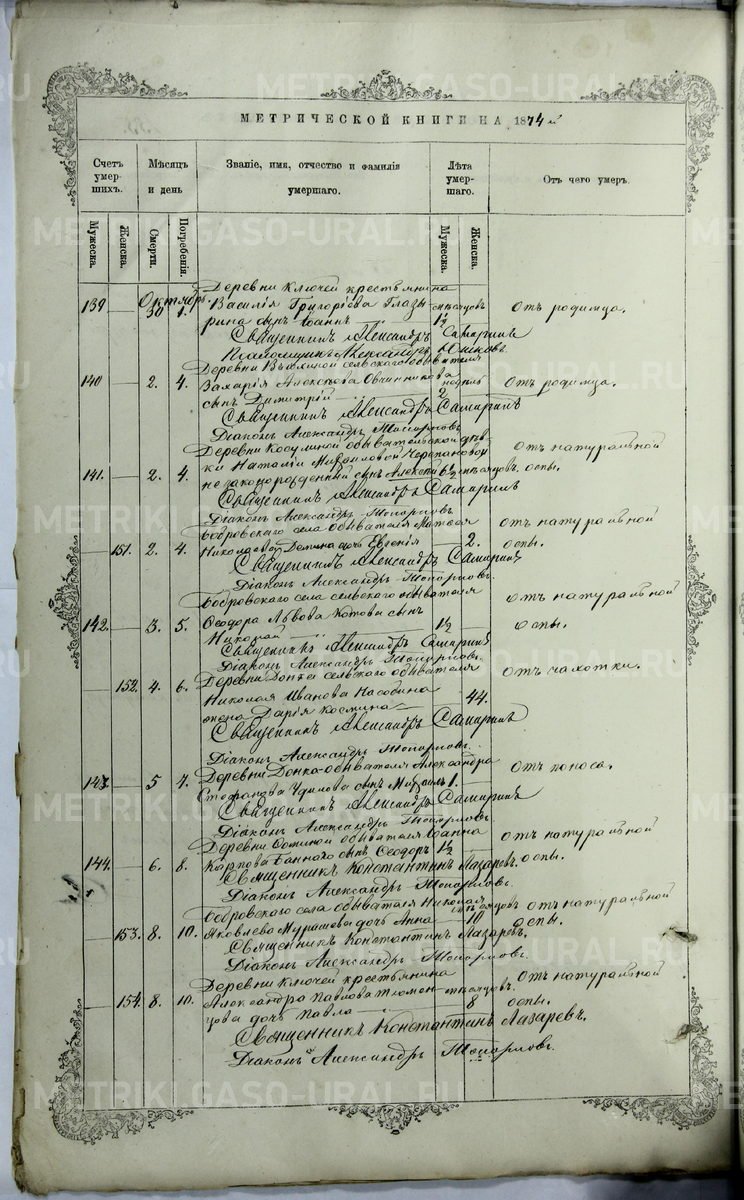 МЕТРИЧЕСКОЙ КНИГИ НА 1874 й
Счетъ умер-шихъ.
Мѣсяцъ и день
Званіе, имя, отчество и фамилія умершаго.
Лѣта умер-шаго.
Отъ чего умеръ.
Мужеска.
Женска.
Смерти.
Погребенія.
Мужеска.
Женска.
Октябрь
Деревни Ключей крестьянина
139 30 1. Василія Григоріева Глазы- мѣсяцовъ отъ родимца.
рина сынъ Іоаннъ 1½
Священникъ Александръ Самаринъ
Александръ
сельскаго обывателя
140 2. 4. Захарія Алексѣева Овчинникова отъ родимца.
сынъ Димитрій 2
Священникъ Александръ Самаринъ
Діаконъ Александръ Топорковъ
Деревни Косулиной обывательской дѣв- отъ натуральной
141. 2. 4. ки Наталіи Михайловой
незаконорожденный сынъ Алексѣй мѣсяцовъ. оспы.
Священникъ Александръ Самаринъ
Діаконъ Александръ Топорковъ
Бобровскаго села обывателя Матвея отъ натуральной
151. 2. 4. Николаева дочь Евгенія 2. оспы.
Священникъ Александръ Самаринъ
Діаконъ Александръ Топорковъ.
Бобровскаго села сельскаго обывателя отъ натуральной
142. 3. 5. Ѳеодора Львова Котова сынъ 1½ оспы.
Николай
Священникъ Александръ Самаринъ
Діаконъ Александръ Топорковъ.
Деревни сельскаго обывателя отъ чахотки.
152. 4. 6. Николая Иванова
жена Дарія Космина 44.
Священникъ Александръ Самаринъ
Діаконъ Александръ Топорковъ.
Деревни обывателя Александра отъ поноса.
143. 5 7. Стефанова сынъ Михаилъ 1.
Священникъ Александръ Самаринъ
Діаконъ Александръ Топорковъ
Деревни обывателя Іоанна отъ натуральной
144. 6. 8. Карпова Баннаго сынъ Ѳеодоръ 1½ оспы.
Священникъ Константинъ Лазаревъ.
Діаконъ Александръ Топорковъ.
Бобровскаго села обывателя Николая отъ натуральной
153. 8. 10. Яковлева дочь Анна 10 оспы.
Священникъ Константинъ Лазаревъ.
Діаконъ Александръ Топорковъ.
Деревни Ключей крестьянина отъ натуральной
154. 8. 10. Александра Павлова Тюмен- мѣсяцовъ. оспы.
цова дочь Павла 8
Священникъ Константинъ Лазаревъ.
Діаконъ Александръ Топорковъ.
METRIKI.GASO-URAL.RU